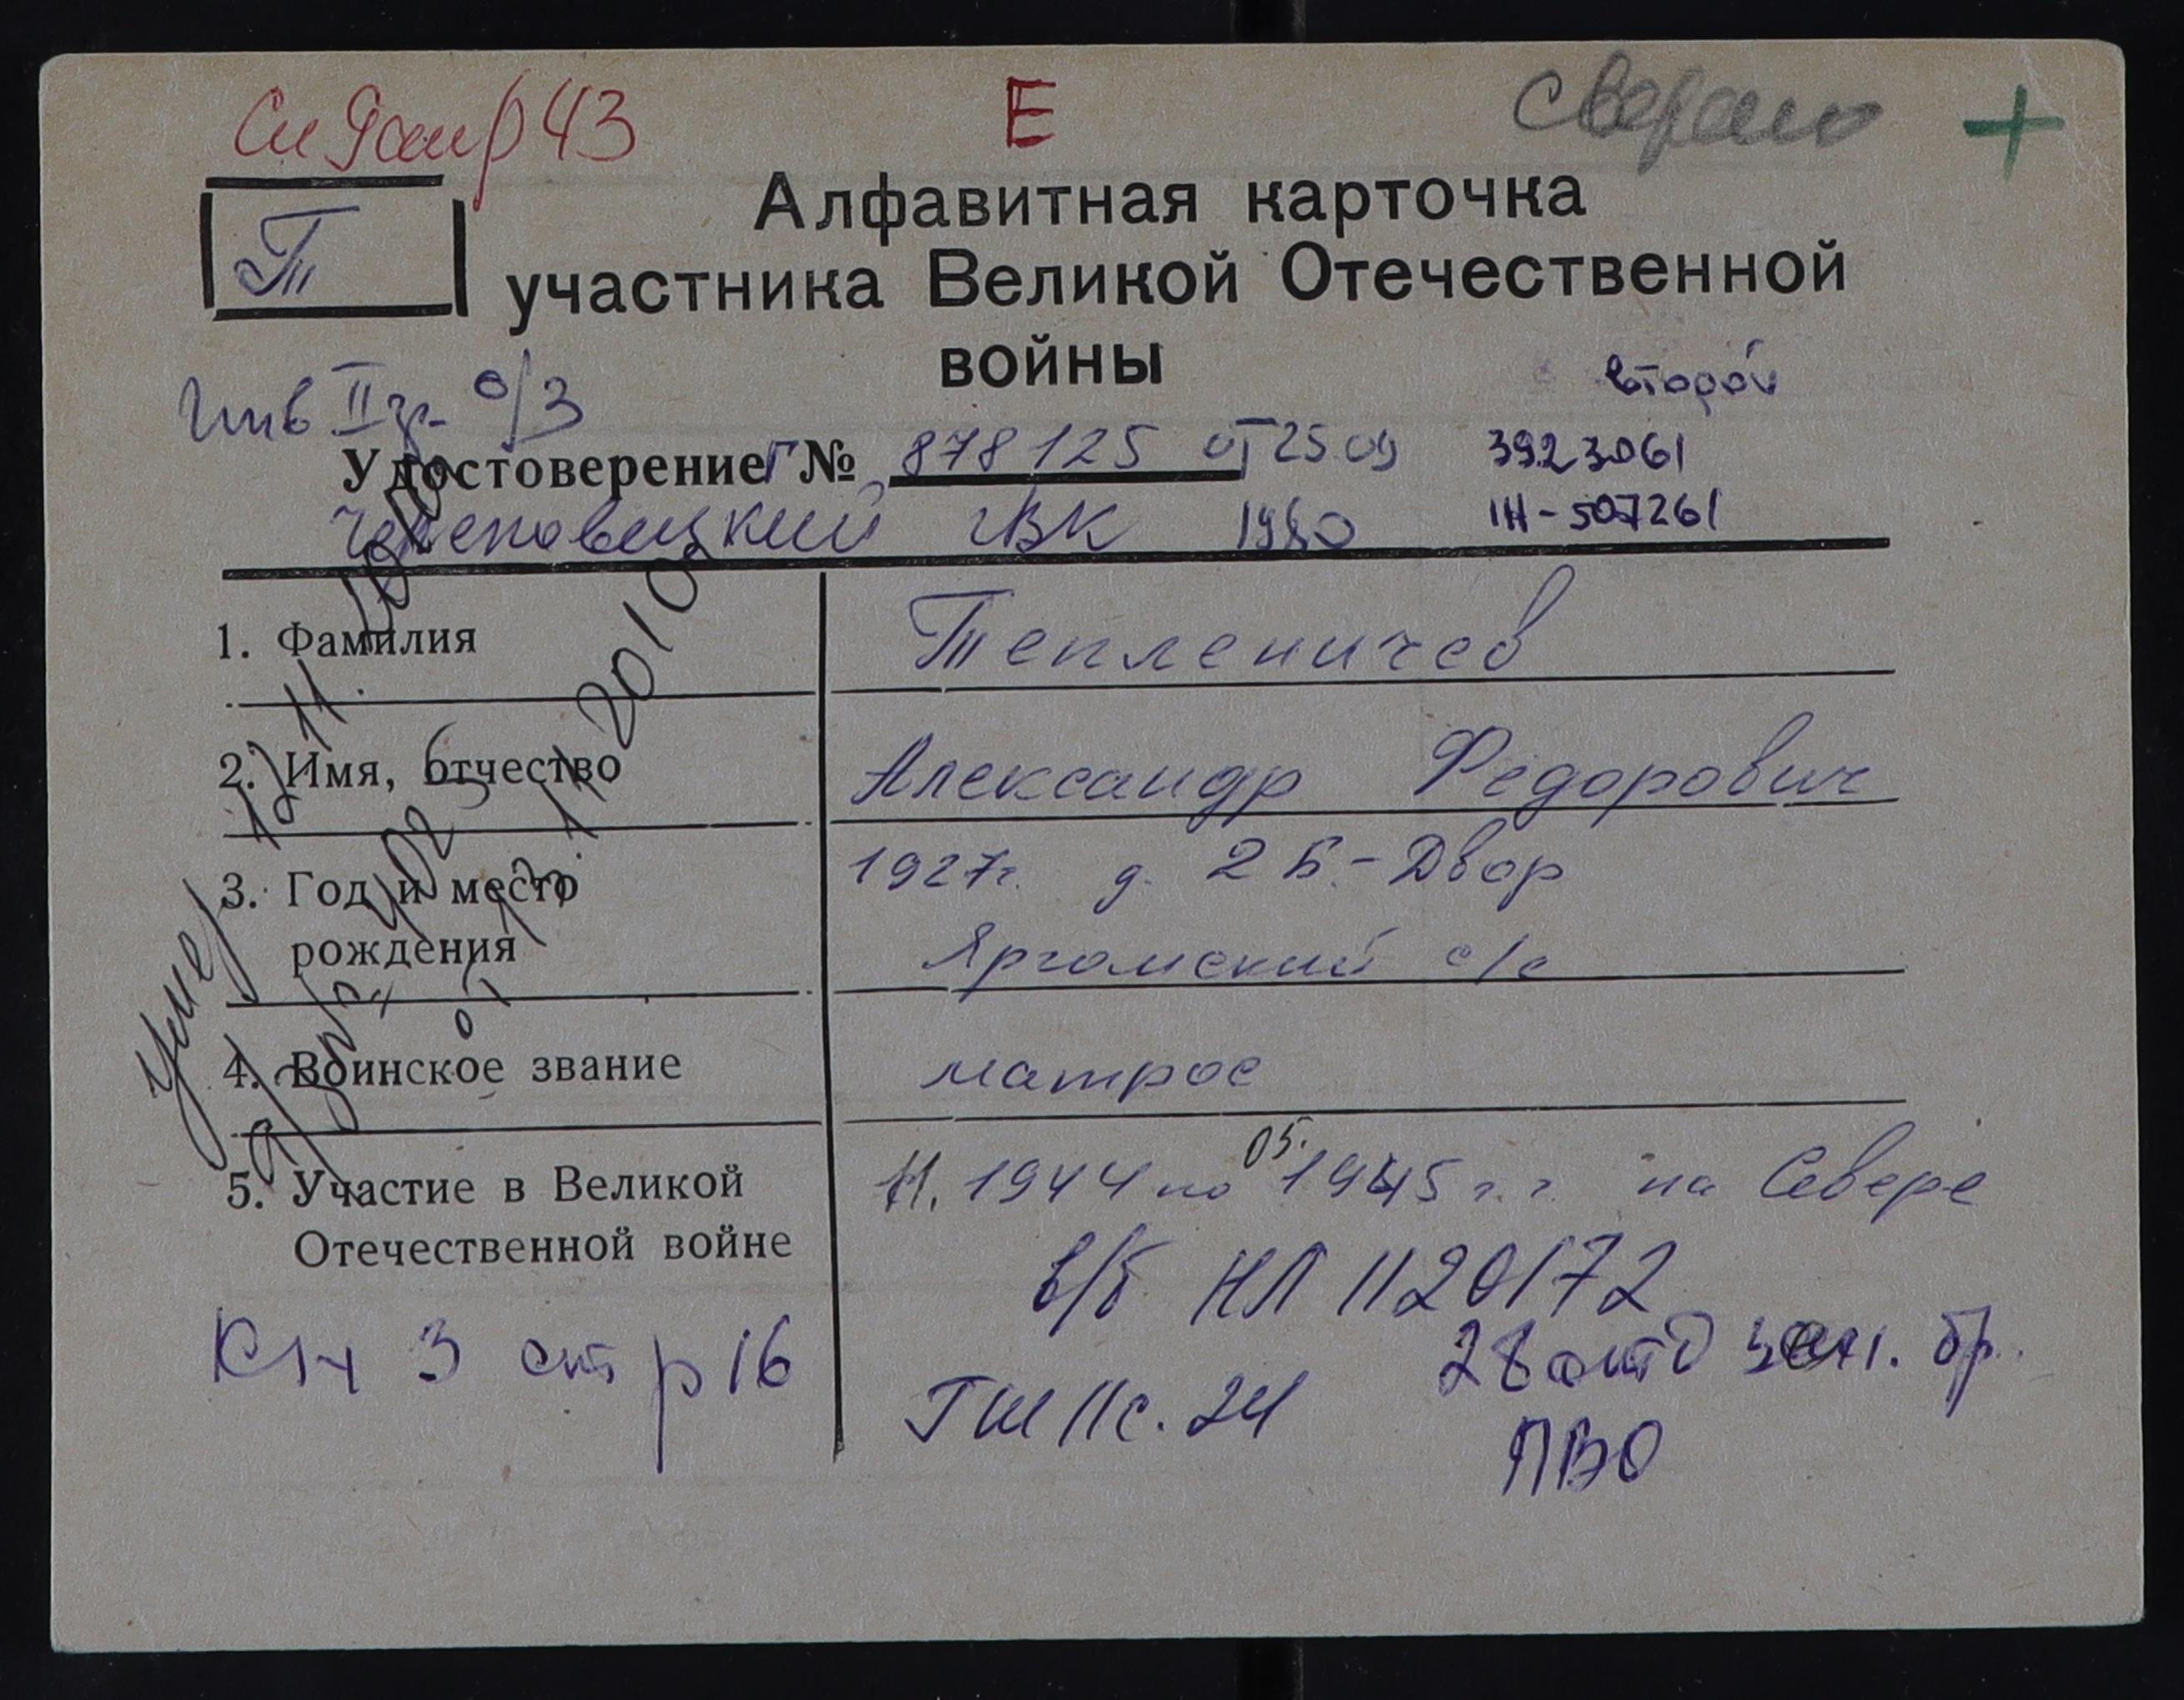 43
Е
сверено
+
Т
Алфавитная карточка
участника Великой Отечественной
войны
второй
Инв II гр. о/з
Удостоверение Г № 878125 от 25 09
3923061
Череповецкий ГВК 1980
1Н-507261
1. Фамилия
Тепленичев
2. Имя, отчество
Александр Федорович
3. Год и место
рождения
1927г. д. 2 Б.-Двор
Яргомский с/с
4. Воинское звание
матрос
5. Участие в Великой
Отечественной войне
11. 1944 по 05. 1945 г.г. на Севере
в/б НЛ 1120172
28 зен. бр.
ПВО
ГШ 11с. 24
Кн 3 стр 16
умер